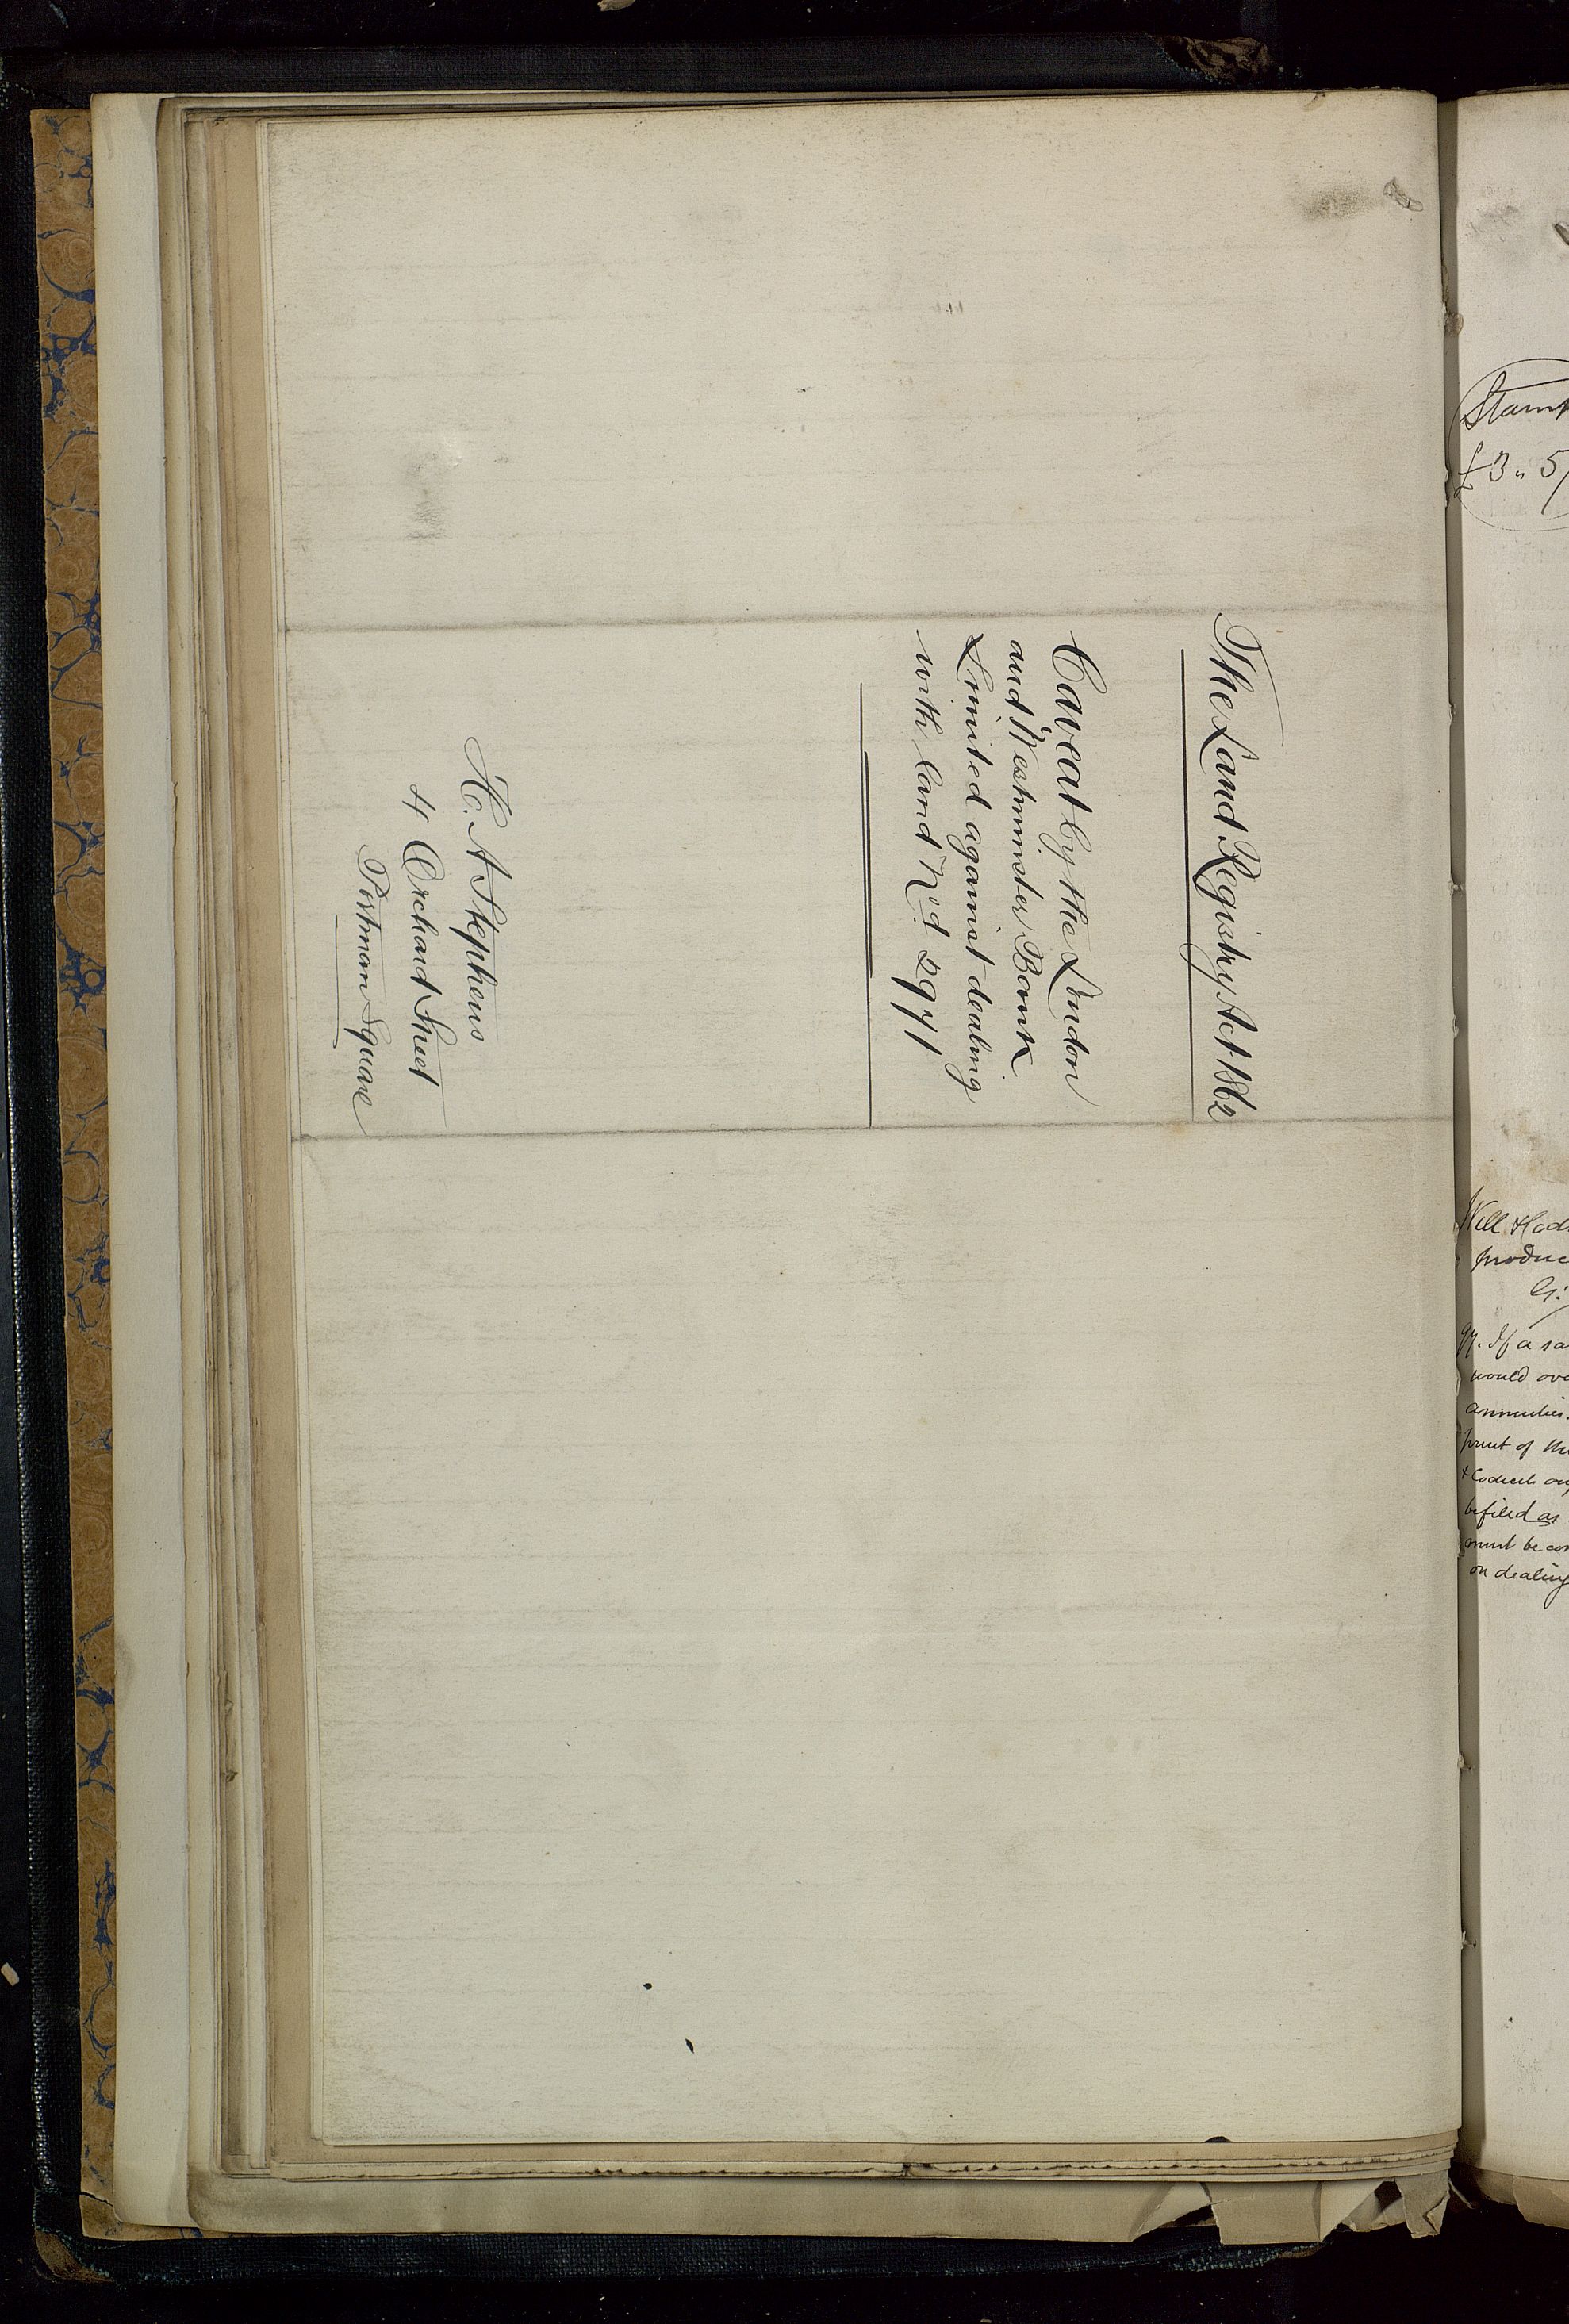 The Land Registry Act 1862
Caveat by the London
and Westminster Bank
Limited against dealing
with land N:d 2971
H. A Stephens
4 Orchard Street
Portman Square
Stamp
£3 " 5/
Will &
produc
G.
If a sa
would ove
annuities.
print of the
be filed as
must be con
on dealing